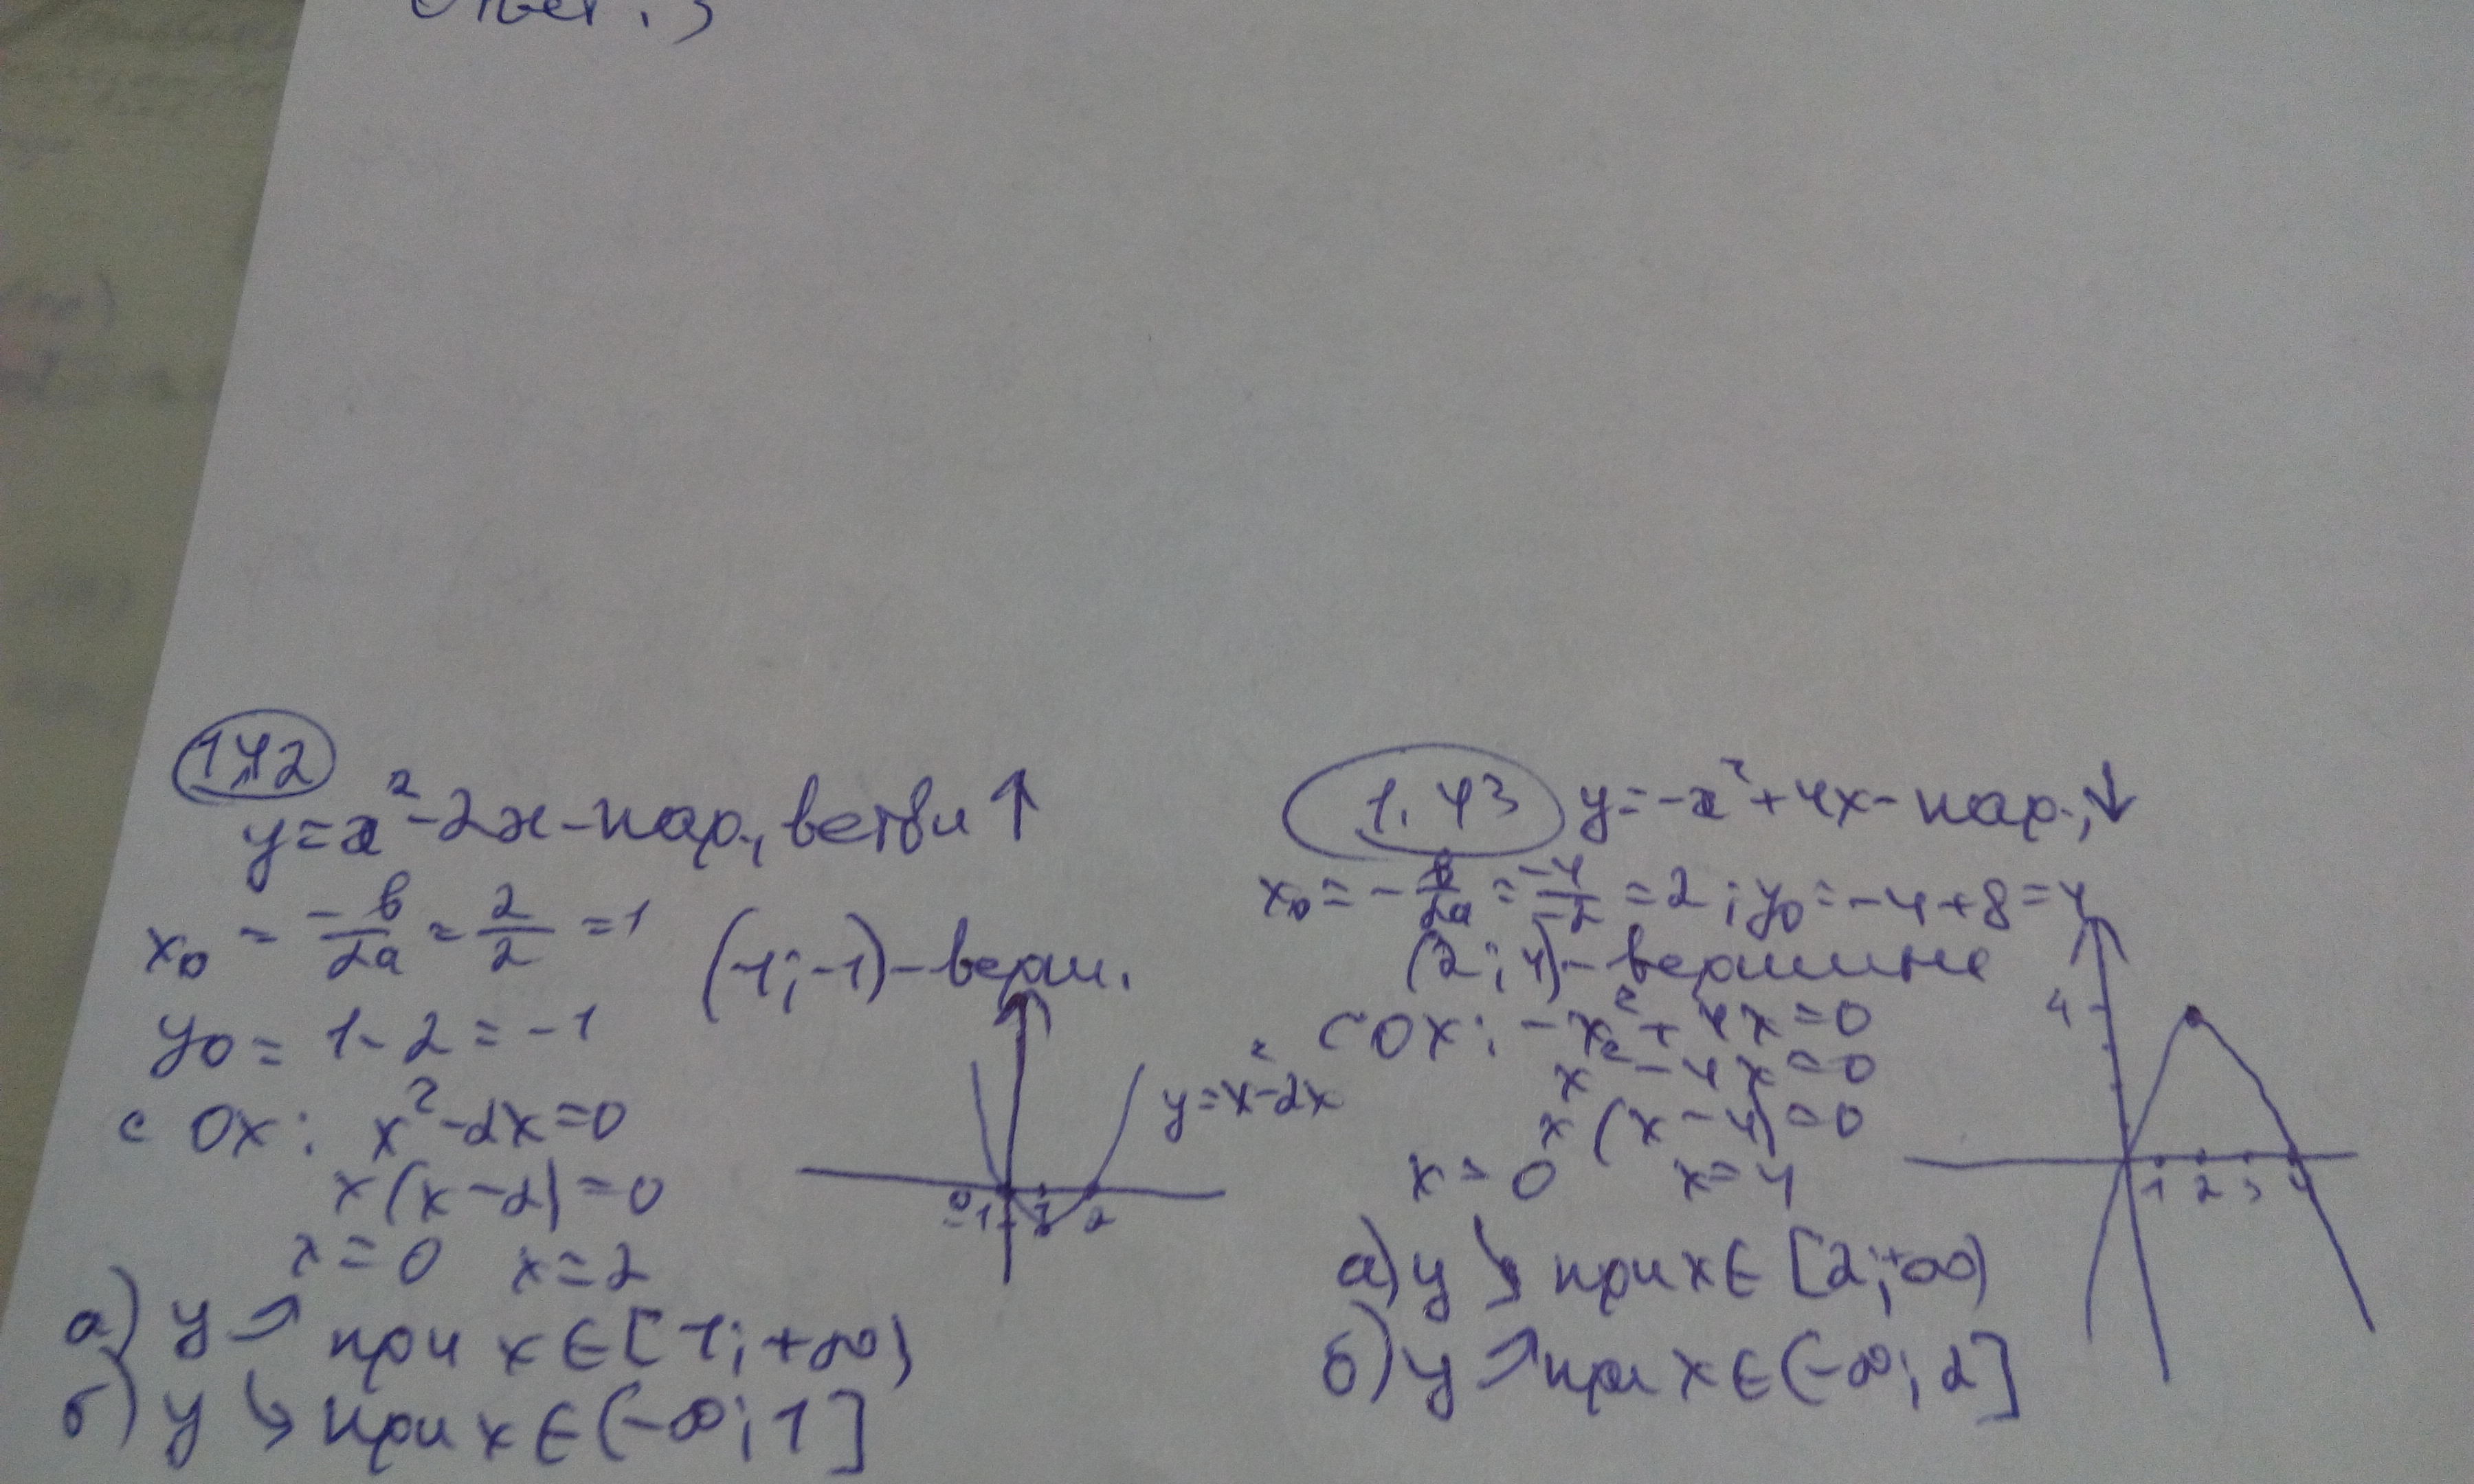 Ответ: 3
1.42
y=x²-2x-пар., ветви ↑
x₀ = -b/2a = 2/2 = 1
(1;-1)-верш.
y₀ = 1-2 = -1
с Ox: x²-2x=0
x(x-2)=0
x=0 x=2
y=x²-2x
0 1 2
-1
а) y ↗ при x∈[1;+∞)
б) y ↘ при x∈(-∞;1]
1.43 y=-x²+4x-пар., ↓
x₀ = -b/2a = -4/-2 = 2; y₀ = -4+8=4
(2;4)-вершина
с Ox: -x²+4x=0
x²-4x=0
x(x-4)=0
x=0 x=4
4
1 2 3 4
а) y ↘ при x∈[2;+∞)
б) y ↗ при x∈(-∞;2]